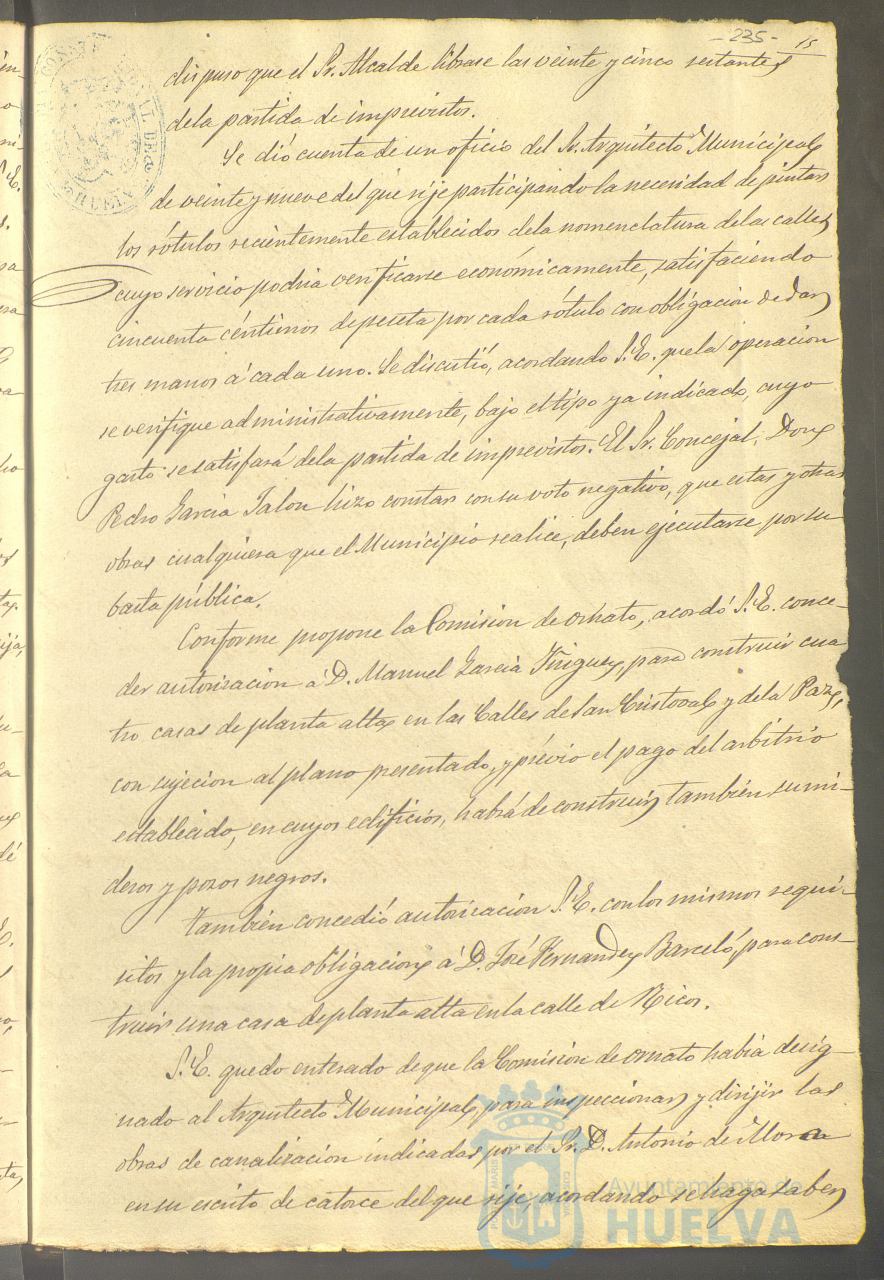 - 235 -
15
dispuso que el Sr. Alcalde librase las veinte y cinco restantes
de la partida de imprevistos.
Se dió cuenta de un oficio del Sr. Arquitecto Municipal
de veinte y nueve del que rije participando la necesidad de pintar
los rótulos recientemente establecidos de la nomenclatura de las calles
cuyo servicio podria verificarse económicamente, satisfaciendo
cincuenta céntimos de peseta por cada rótulo con obligacion de dar
tres manos á cada uno. Se discutió, acordando S.E. que la operacion
se verifique administrativamente, bajo el tipo ya indicado, cuyo
gasto se satisfará de la partida de imprevistos. El Sr. Concejal, Don
Pedro Garcia Jalon hizo constar con su voto negativo, que estas y otras
obras cualquiera que el Municipio realice, deben ejecutarse por su-
basta pública.
Conforme propone la Comision de ornato, acordó S.E. conce-
der autorizacion á D. Manuel Garcia Iñiguez, para construir cua
tro casas de planta alta en las Calles de San Cristoval y de la Paz,
con sujecion al plano presentado, y prévio el pago del arbitrio
establecido, en cuyos edificios, habrá de construir también sumi-
deros y pozos negros.
También concedió autorizacion S.E. con los mismos requi-
sitos y la propia obligacion á D. José Fernandez Barceló para cons-
truir una casa de planta alta en la calle de Ricos.
S.E. quedo enterado de que la Comision de ornato habia desig-
nado al Arquitecto Municipal, para inspeccionar y dirijir las
obras de canalizacion indicadas por el Sr. D. Antonio de Mora
en su escrito de catorce del que rije, acordando se haga saber
Ayuntamiento de
HUELVA